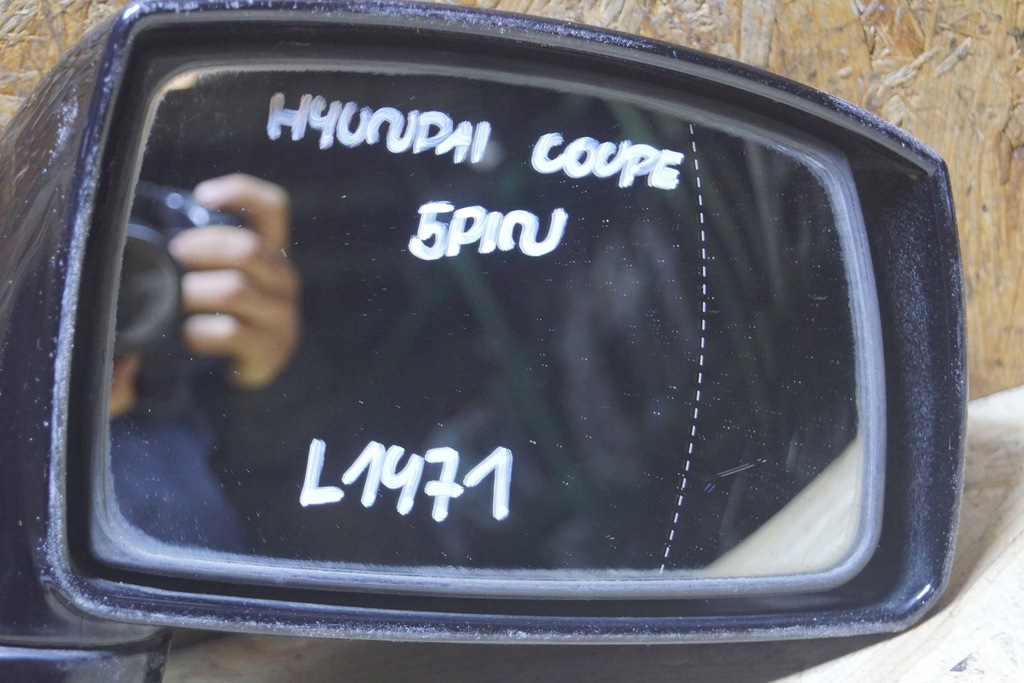 HYUNDAI COUPE
5PIN
L1471